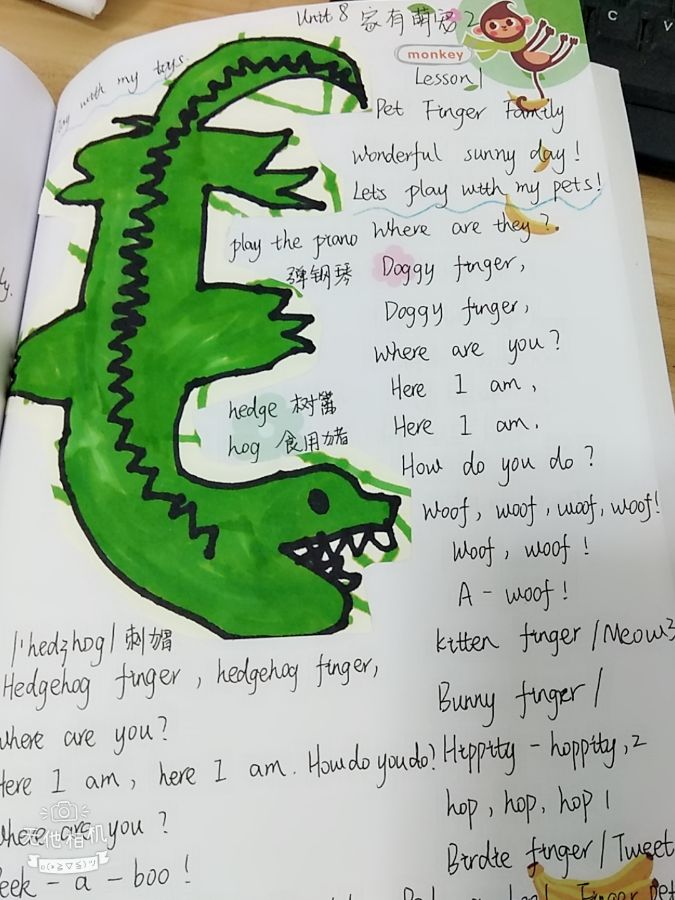 Unit 8 家有萌宠2
monkey
Lesson 1
Pet Finger Family
with my toys.
Wonderful sunny day!
Lets play with my pets!
play the piano
弹钢琴
Where are they?
Doggy finger,
Doggy finger,
where are you?
Here I am,
Here I am.
How do you do?
hedge 树篱
hog 食用猪
Woof, woof, woof, woof!
Woof, woof!
A-woof!
kitten finger / Meow3
Bunny finger /
Hippity-hoppity,2
hop, hop, hop 1
Birdie finger / Tweet
/'hedʒhog/ 刺猬
Hedgehog finger, hedgehog finger,
where are you?
Here I am, here I am. How do you do?
where are you?
Peek-a-boo!
C
V